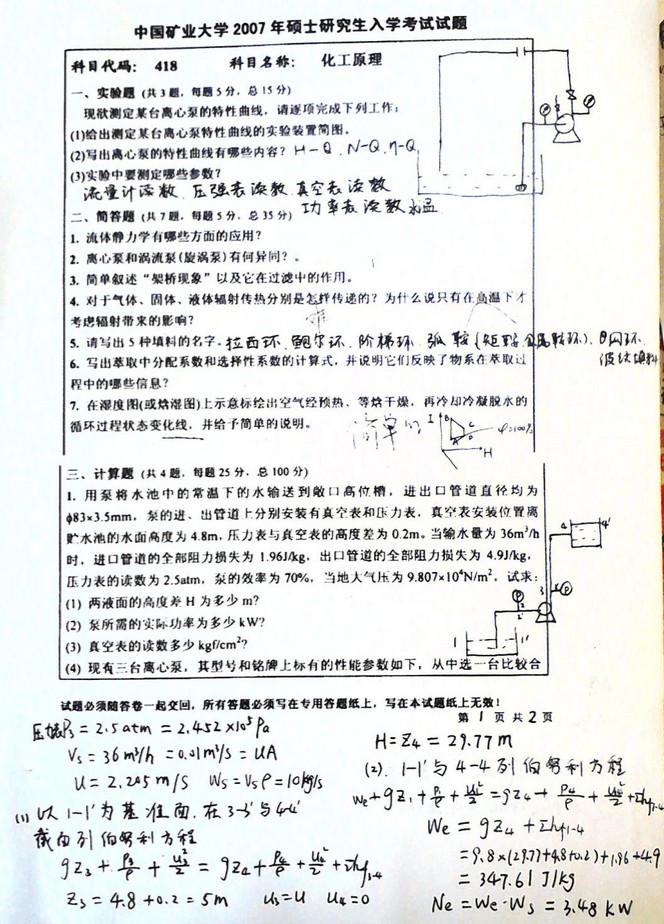 中国矿业大学 2007 年硕士研究生入学考试试题
科目代码： 418 科目名称： 化工原理
一、实验题（共 3 题，每题 5 分，总 15 分）
现欲测定某台离心泵的特性曲线，请逐项完成下列工作：
(1)给出测定某台离心泵特性曲线的实验装置简图。
(2)写出离心泵的特性曲线有哪些内容？ H－Q、N－Q、η－Q
(3)实验中要测定哪些参数？
流量计读数、压强表读数、真空表读数
功率表读数 水温
二、简答题（共 7 题，每题 5 分，总 35 分）
1. 流体静力学有哪些方面的应用？
2. 离心泵和涡流泵(旋涡泵)有何异同？。
3. 简单叙述“架桥现象”以及它在过滤中的作用。
4. 对于气体、固体、液体辐射传热分别是怎样传递的？为什么说只有在高温下才
考虑辐射带来的影响？
5. 请写出 5 种填料的名字。拉西环、鲍尔环、阶梯环、弧鞍(矩鞍、金属鞍环)、θ网环、
波纹填料
6. 写出萃取中分配系数和选择性系数的计算式，并说明它们反映了物系在萃取过
程中的哪些信息？
7. 在湿度图(或焓湿图)上示意标绘出空气经预热、等焓干燥，再冷却冷凝脱水的
循环过程状态变化线，并给予简单的说明。
简单的 I B C A D φ=100% H
三、计算题（共 4 题，每题 25 分，总 100 分）
1. 用泵将水池中的常温下的水输送到敞口高位槽，进出口管道直径均为
φ83×3.5mm，泵的进、出管道上分别安装有真空表和压力表，真空表安装位置离
贮水池的水面高度为 4.8m，压力表与真空表的高度差为 0.2m。当输水量为 36m³/h
时，进口管道的全部阻力损失为 1.96J/kg，出口管道的全部阻力损失为 4.9J/kg，
压力表的读数为 2.5atm，泵的效率为 70%，当地大气压为 9.807×10⁴N/m²，试求：
(1) 两液面的高度差 H 为多少 m？
(2) 泵所需的实际功率为多少 kW？
(3) 真空表的读数多少 kgf/cm²？
(4) 现有三台离心泵，其型号和铭牌上标有的性能参数如下，从中选一台比较合
试题必须随答卷一起交回，所有答题必须写在专用答题纸上，写在本试题纸上无效！
第 1 页 共 2 页
P₃ = 2.5 atm = 2.452×10⁵ Pa
Vs = 36 m³/h = 0.01 m³/s = UA
U = 2.205 m/s Ws = Vsρ = 10 kg/s
(1) 以 1-1' 为基准面，在 3-3' 与 4-4'
截面列伯努利方程
gZ₃ + P₃/ρ + U₃²/2 = gZ₄ + P₄/ρ + U₄²/2 + Σhf₃₋₄
Z₃ = 4.8 + 0.2 = 5m U₃=U U₄=0
H = Z₄ = 29.77 m
(2). 1-1' 与 4-4 列伯努利方程
We + gZ₁ + P₁/ρ + U₁²/2 = gZ₄ + P₄/ρ + U₄²/2 + Σhf₁₋₄
We = gZ₄ + Σhf₁₋₄
= 9.8×(29.77+4.8+0.2)+1.96+4.9
= 347.61 J/kg
Ne = We·Ws = 3.48 KW